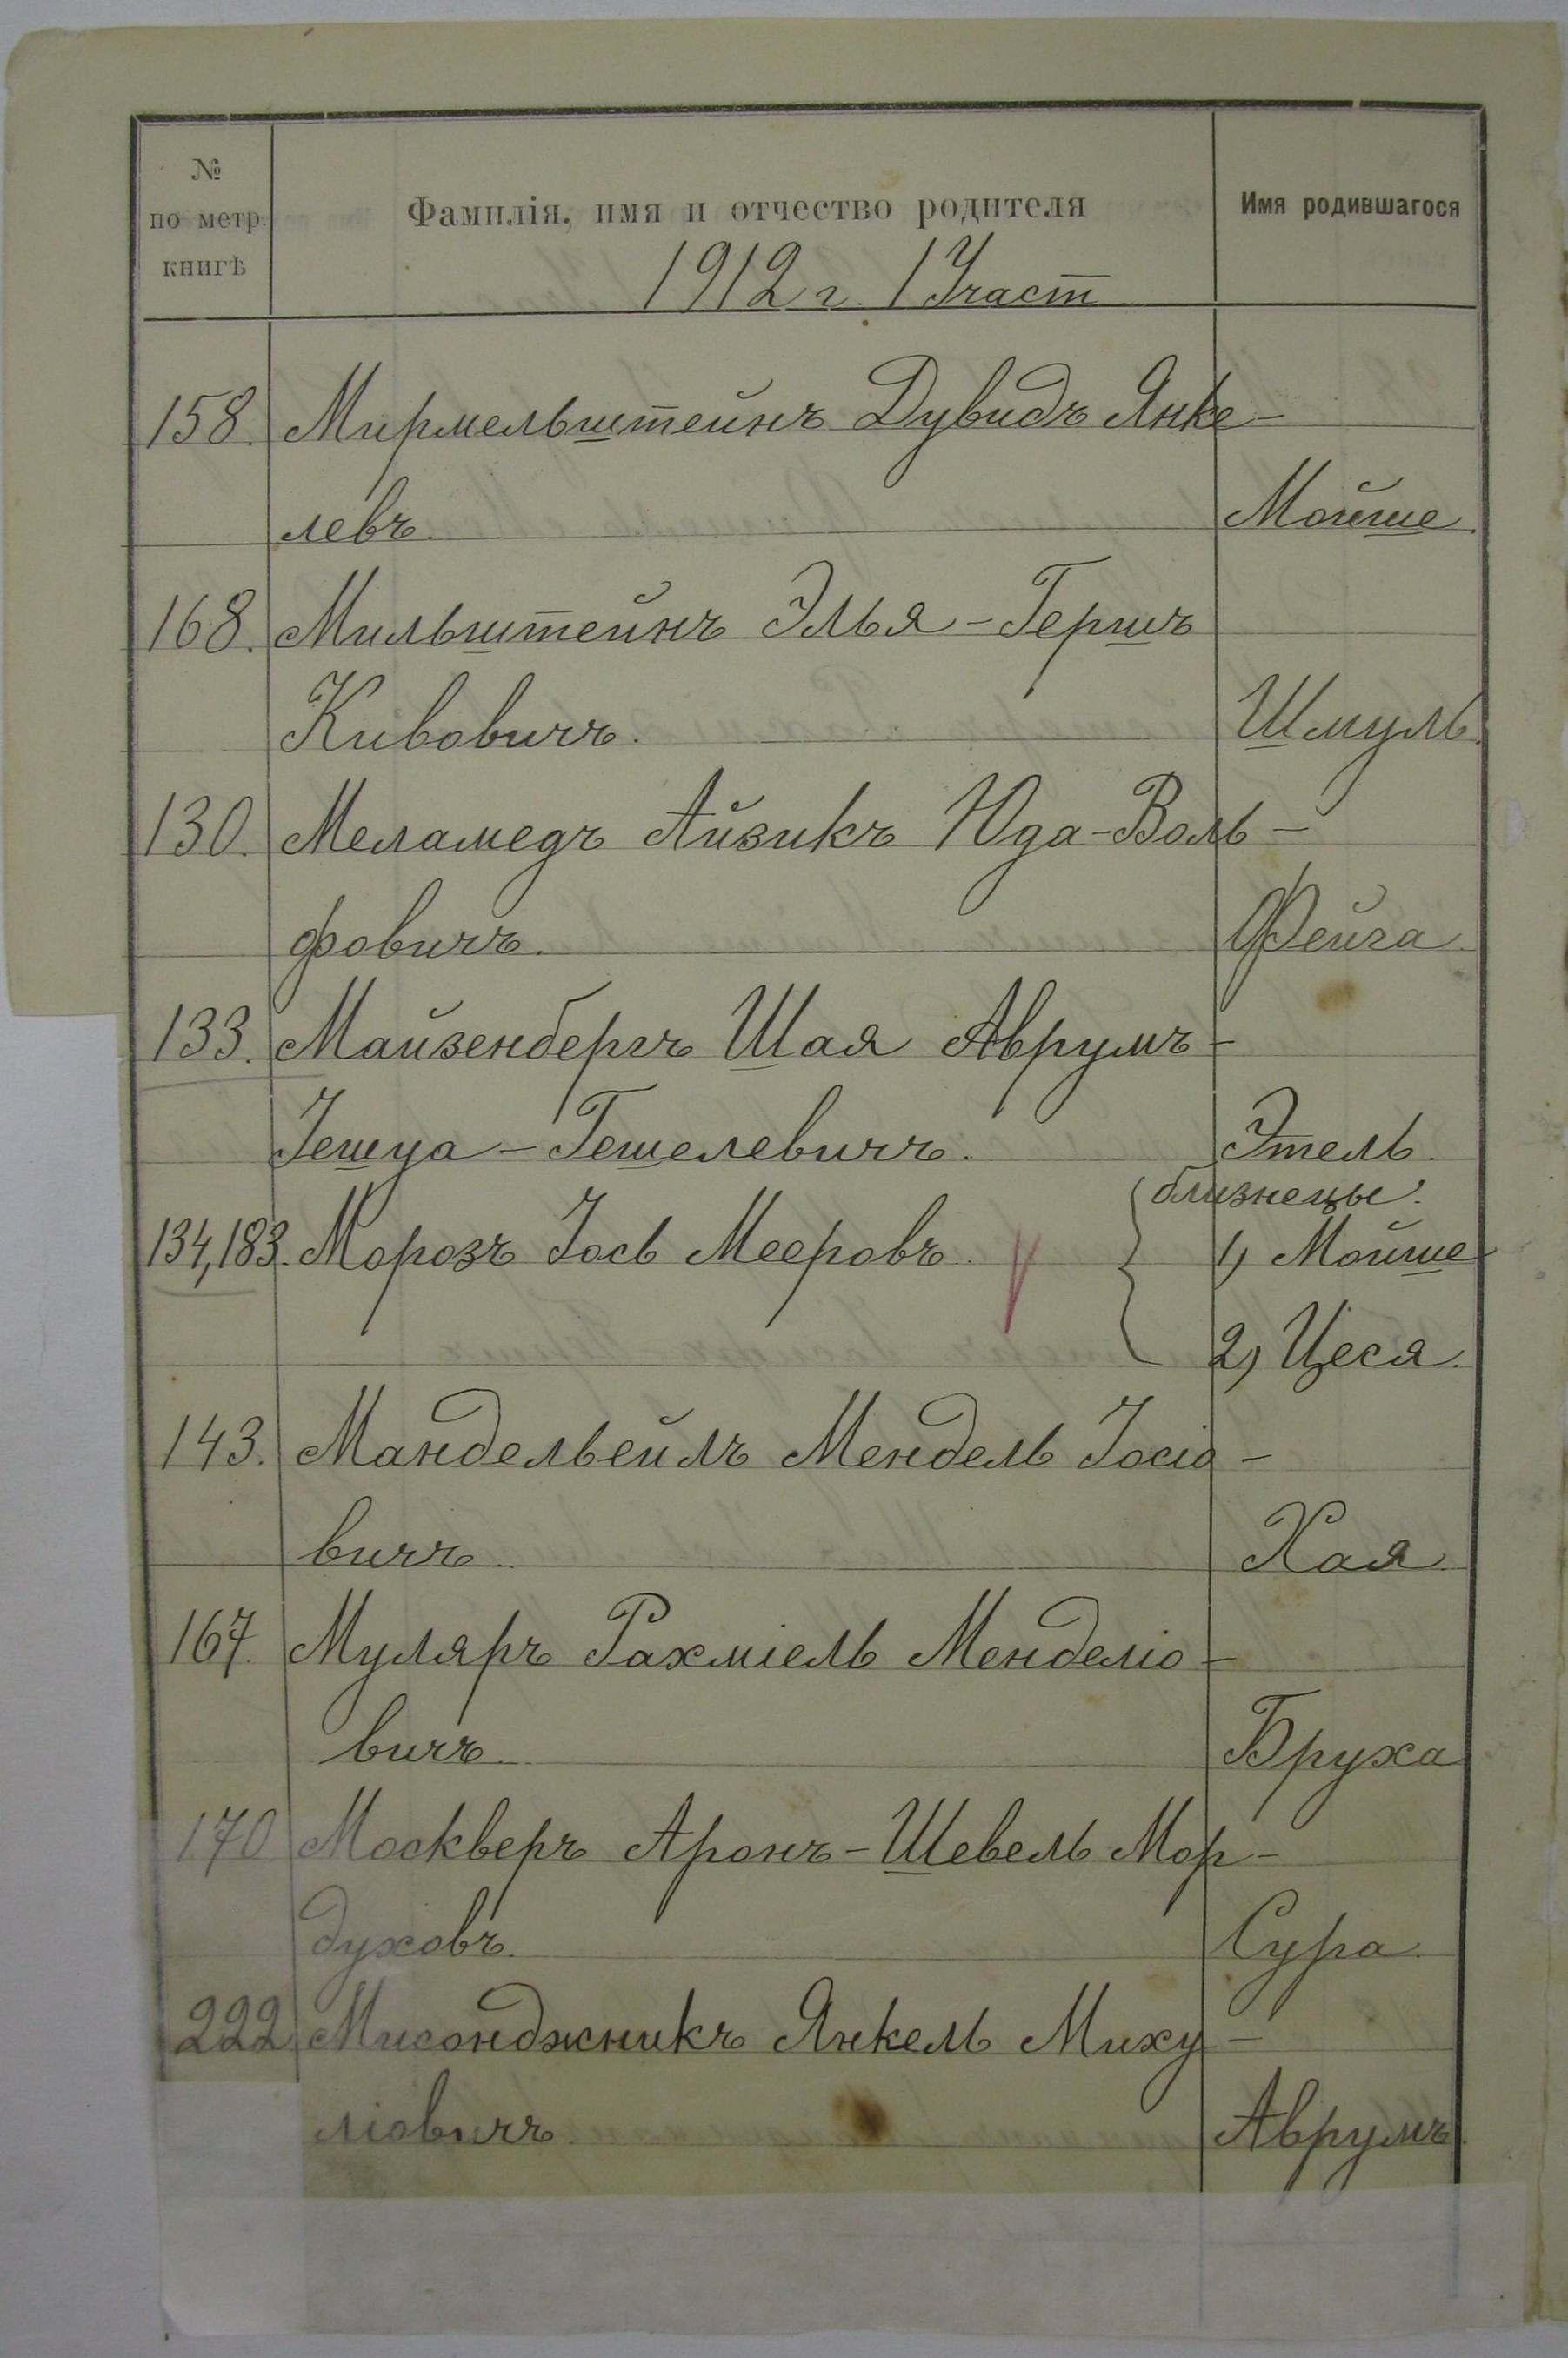 № по метр. книгѣ
Фамилія, имя и отчество родителя
Имя родившагося
1912 г. 1 Участ
158. Мирмельштейнъ Дувидъ Янке-
левъ. Мойше.
168. Мильштейнъ Элья-Гершъ
Кивовичъ. Шмуль.
130. Меламедъ Айзикъ Юда-Воль-
фовичъ. Фейга.
133. Майзенбергъ Шая Аврумъ-
Іешуа-Гешелевичъ. Этель.
близнецы.
134,183. Морозъ Іось Мееровъ. 1) Мойше
2) Цеся.
143. Мандельвейлъ Мендель Іосіо-
вичъ. Хая.
167. Муляръ Рахміель Менделіо-
вичъ. Бруха
170 Москверъ Аронъ-Шевель Мор-
духовъ. Сура.
222 Мисонджникъ Янкель Миху-
ліовичъ. Аврумъ.